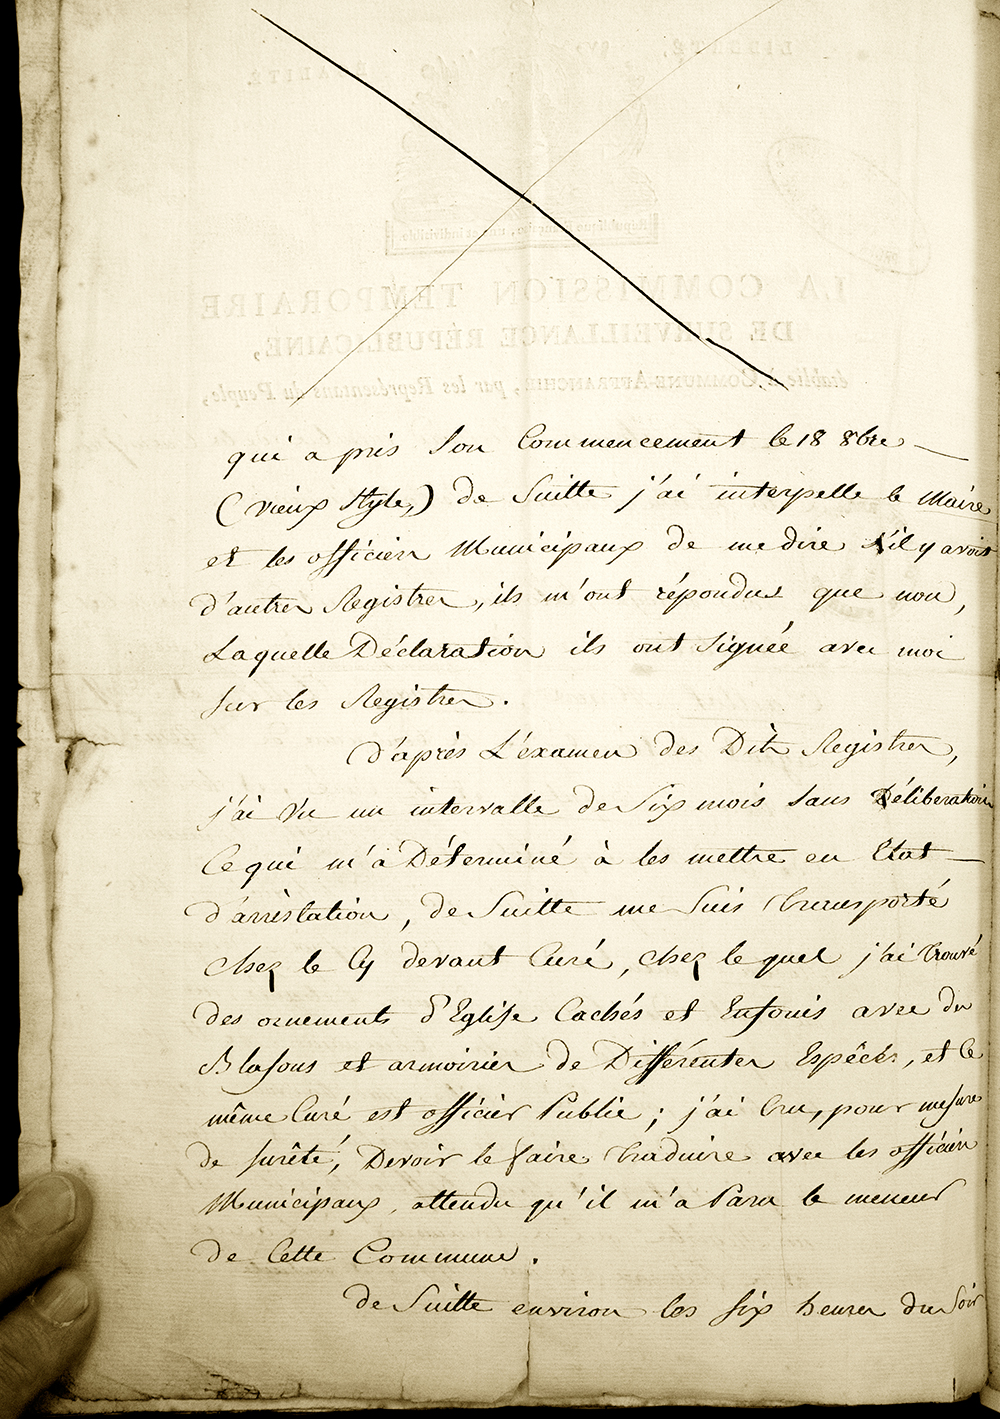 LIBERTÉ,
ÉGALITÉ.
République française, une et indivisible.
LA COMMISSION TEMPORAIRE
DE SURVEILLANCE RÉPUBLICAINE,
établie à COMMUNE-AFFRANCHIE, par les Représentans du Peuple,
qui a pris Son Commencement le 18 8bre
(vieux Style,) de Suitte j'ai interpellé le Maire
et les officiers Municipaux de me dire s'il y avoit
d'autres Registres, ils m'ont répondus que non,
Laquelle Déclaration ils ont Signée avec moi
sur les Registres.
D'après L'examen des Dits Registres,
j'ai Vu un intervalle de Six mois Sans Délibération
Ce qui m'a Déterminé à les mettre en Etat
d'arrèstation, de Suitte me Suis transporté
chez le Cy devant Curé, chez le quel j'ai trouvé
des ornements d'Eglise Cachés et Enfouis avec du
Blasons et armoiries de Différentes Espèces, et le
même Curé est officier Public; j'ai Cru, pour mesure
de surêté, Devoir le faire traduire avec les officiers
Municipaux, attendu qu'il m'a Paru le meneur
de Cette Commune.
de Suitte environ les six heures du Soir